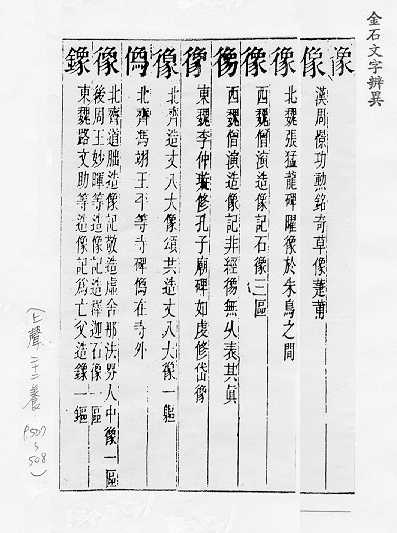 金石文字辨異
像
像
漢周憬功勳銘奇草像蓮莆
像
北魏張猛龍碑曜像於朱鳥之間
像
西魏僧演造像記石像一區
像
西魏僧演造像記非經像無以表其真
像
東魏李仲璇修孔子廟碑如虔修岱像
像
北齊造丈八大像頌共造丈八大像一軀
北齊馮翊王平等寺碑像在寺外
像
北齊道朏造像記敬造盧舍那法界人中像一區
後周王妙暉等造像記造釋迦石像一區
鐌
東魏路文助等造像記為亡父造鐌一鏂
(上聲 二十二養
P507
508)